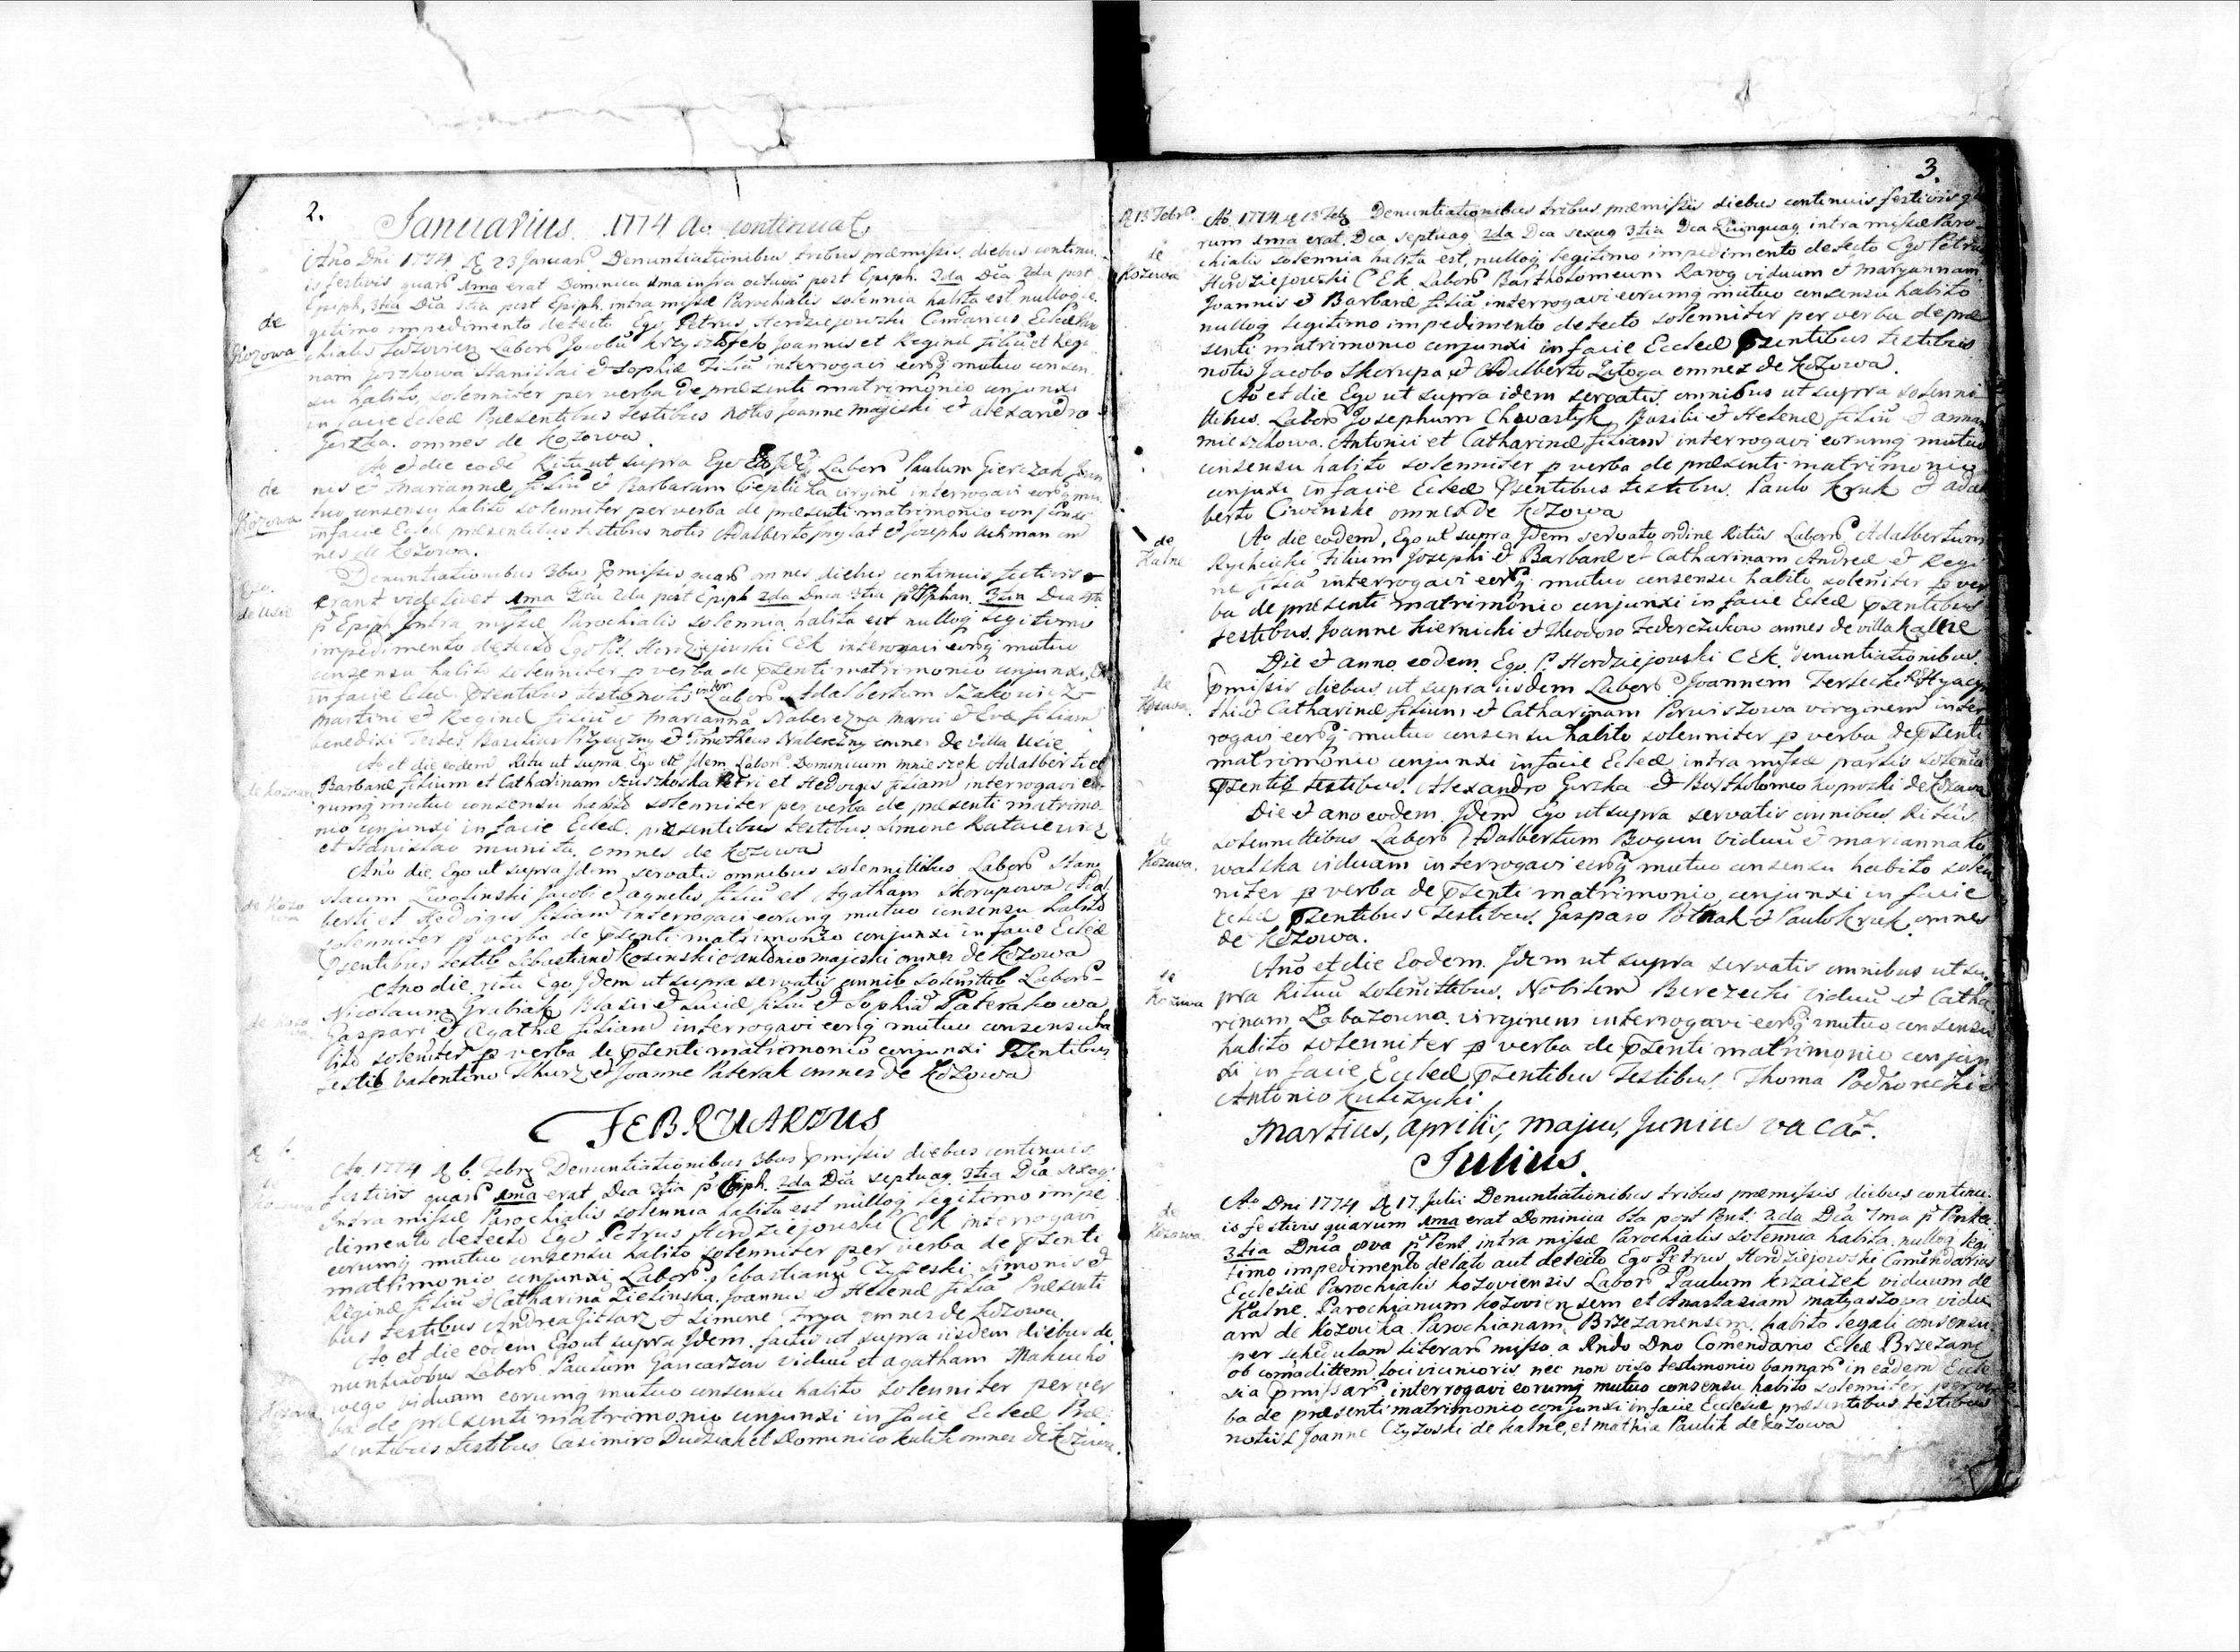 2.
Januarius. 1774 Ao continuat
Ano Dni 1774 D 23 Januar. Denuntiationibus tribus præmissis diebus continu
is festivis quar 1ma erat Dominica 1ma infra octavã post Epiph. 2da Dca 2da post
Epiph, 3tia Dca 3tia post Epiph. intra missæ Parochialis solennia habita est, nulloq le
de
Kozowa
gitimo impedimento detecto Ego Petrus Herdziejowski Comdarius Eccl Paro
chialis Labor Jacobũ Krzysztofek Joannis et Reginæ filiũ et Regi
nam Jerzkowa Stanislai et Sophiæ filiã interrogavi eorq mutuo consen
su habito, solenniter per verba de præsenti matrimonio conjunxi
in facie Eccleæ Præsentibus testibus notis Joanne Majeski et Alexandro
Gerzka. omnes de Kozowa.
Ao et die eodẽ Ritu ut supra Ego Idẽ Labor Paulum Gierczak Joan
de
Kozowa
nis et Mariannæ filiũ et Barbaram Cieplicka virginẽ interrogavi eorq mu
tuo consensu habito solenniter per verba de præsenti matrimonio conjunxi
in facie Eccleæ præsentibus testibus notis Adalberto et Josepho Uchman om
nes de Kozowa.
de Usie
Denuntiationibus 3bus pmissis quar omnes diebus continuis festivis
erant videlicet 1ma Dca 2da post Epiph 2da Dnca 3tia Dca
p Epiph intra missæ Parochialis solennia habita est nulloq legitimo
impedimento detecto Ego P. Herdziejowski CEK interrogavi eorq mutuo
consensu habito solenniter p verba de psenti matrimonio conjunxi
in facie Eccleæ psentibus testib notis inter Labor Adalbertum Szakowicz
Martini et Reginæ filiũ et Mariannã Naberezna Marci et Evæ filiam
benedixi Testes Basilius et Timotheus Naberezny omnes de villa Usie
de Kozowa
Ao et die eodem Ritu ut supra Ego etc Idem Labor Dominicum Mnieszek Adalberti et
Barbaræ filium et Catharinam Szuszkoska Petri et Hedvigis filiam interrogavi eo
rumq mutuo consensu habito solenniter per verba de præsenti matrimo
nio conjunxi in facie Eccleæ. præsentibus testibus Simone Kutaiewicz
et Stanislao munita omnes de Kozowa
Ano die, Ego ut supra Idem servatis omnibus solennittibus Labor Stani
de Kozo
wa
slaum Zwolinski Jacobi et Agnetis filiũ et Agatham Skorupowa Adal
berti et Hedvigis filiam interrogavi eorumq mutuo consensu habito
solenniter p verba de psenti matrimonio conjunxi in facie Eccleæ
Psentibus testib Sebastiano Kosinski et antonio majeski omnes de Kozowa
Ano die ritu Ego Idem ut supra servatis omnib solenittib Labor
Nicolaum Grabiak Blasii et Luciæ filiũ et Sophiã Paterakowa
de Kozo
wa
Gaspari et Agathæ filiam interrogavi eorq mutuo consensu ha
bito solenniter p verba de psenti matrimonio conjunxi Psentibus
testib Valentino Skurz et Joanne Paterak omnes de Kozowa
FEBRUARIUS
Ao. 1774 D 6. Febr Denuntiationibus 3bus pmissis diebus continuis
festivis quar 1ma erat Dca 3tia p Epiph. 2da Dca septuag. 3tia Dca sexag.
Kozowa
Intra missæ Parochialis solennia habita est nulloq legitimo impe
dimento detecto Ego Petrus Herdziejowski CEK interrogavi
eorumq mutuo consensu habito solenniter per verba de psenti
matrimonio conjunxi Labor Sebastianũ Czyzeski Simonis et
Reginæ filiũ et Catharinã Zielinska Joannis et Helenæ filiã Præsenti
bus testibus Andrea Gitlarz et Simone Fryga omnes de Kozowa
Ao. et die eodem Ego ut supra Idem factis ut supra iisdem diebus de
nuntiaõbus Labor Paulum Gancarzow viduũ et agatham Makucho
Kozowa
wego viduam eorumq mutuo consensu habito solenniter per ver
ba de præsenti matrimonio conjunxi in facie Eccleæ Præ
sentibus testibus Casimiro Dudziak et Dominico kulik omnes de Kozowa
3.
D 13 Febr.
Ao. 1774 D 13 Feb Denuntiationibus tribus præmissis diebus continuis festivis qua
rum 1ma erat Dca septuag. 2da Dca sexag 3tia Dca Quinquag. intra missæ Paro
de
Kozowa
chialis solennia habita est, nulloq legitimo impedimento detecto Ego Petrus
Herdziejowski CEK. Labor Bartholomeum Rarog viduum et Maryannam
Joannis et Barbaræ filiã interrogavi eorumq mutuo consensu habito
nulloq legitimo impedimento detecto solenniter per verba de præ
senti matrimonio conjunxi in facie Eccleæ Psentibus testibus
notis Jacobo Skorupa et Adalberto Lytoga omnes de Kozowa.
Ao et die Ego ut supra idem servatis omnibus ut supra solenni
tibus. Labor Josephum Chwastyk Basilii et Helenæ filiũ et annam
mieszkowa. Antonii et Catharinæ filiam interrogavi eorumq mutuo
consensu habito solenniter p verba de præsenti matrimonio
conjuxi in facie Eccleæ Psentibus testibus. Paulo Kruk et adal
berto Cwinske omnes de Kozowa
de
Kalne
Ao die eodem, Ego ut supra Idem servato ordine Ritus Labor Adalbertum
Rychcicki Filium Josephi et Barbaræ et Catharinam Andreæ et Regi
næ filiã interrogavi eorq mutuo consensu habito soleniter p ver
ba de præsenti matrimonio conjunxi in facie Eccleæ psentibus
testibus. Joanne Kiernicki et Theodoro Federczukow omnes de villa Kalne
Die et anno eodem. Ego P. Herdziejowski CEK. denuntiationibus
de
Kozowa
pmissis diebus ut supra iisdem Labor Joannem Tersecki Hyacyn
thi et Catharinæ filium et Catharinam Perwiszowa virginem inter
rogavi eorq mutuo consensu habito solenniter p verba de psenti
matrimonio conjunxi in facie Eccleæ, intra missæ parõlis solenia
psentib testibus. Alexandro Gerzka et Bartholomeo Koproski de Kozowa
Die et ano eodem. Idem Ego ut supra servatis omnibus Ritus
de
Kozowa.
solennittibus Labor Adalbertum Bogun Viduũ et marianna Ko
walska viduam interrogavi eorq mutuo consensu habito solen
niter p verba de psenti matrimonio conjunxi in facie
Eccleæ psentibus Testibus. Gasparo Potnak et Paulo Kruk. omnes
de Kozowa.
Ano et die Eodem. Idem ut supra servatis omnibus ut su
de
Kozowa
pra Rituũ solenittibus. Nobilem Berezecki viduũ et Catha
rinam Labazowna. virginem interrogavi eorq mutuo consensu
habito solenniter p verba de psenti matrimonio conjun
xi in facie Eccleæ psentibus Testibus Thoma Podhorecki et
Antonio Kulczycki
Martius, aprilis, majus, Junius vacat.
Julius.
Ao Dni 1774 D 17. Julii Denuntiationibus tribus præmissis diebus continu
de
Kozowa.
is festivis quarum 1ma erat Dominica 6ta post Pent: 2da Dca 7ma p Pente
3tia Dnica 8va p Pent intra missæ Parochialis solennia habita. nulloq legi
timo impedimento delato aut detecto Ego Petrus Herdziejowski Comendarius
Ecclesiæ Parochialis Kozoviensis Labor Paulum Krzaizek viduum de
Kalne. Parochianum Kozoviensem et Anastasiam matyaszowa vidu
am de Kozowka Parochianam Brzezanensem. habito legali consensu
per schedulam literar misso. a Rndo Dno Comendario Eccleæ Brzezane
ob comadittem loci vicinioris, nec non viso testimonio bannar in eadem Eccle
sia pmissar. interrogavi eorumq mutuo consensu habito solenniter per ver
ba de præsenti matrimonio conjunxi in facie Ecclesiæ præsentibus testibus
notis Joanne Czyzoski de Kalne, et mathia Paulik de Kozowa